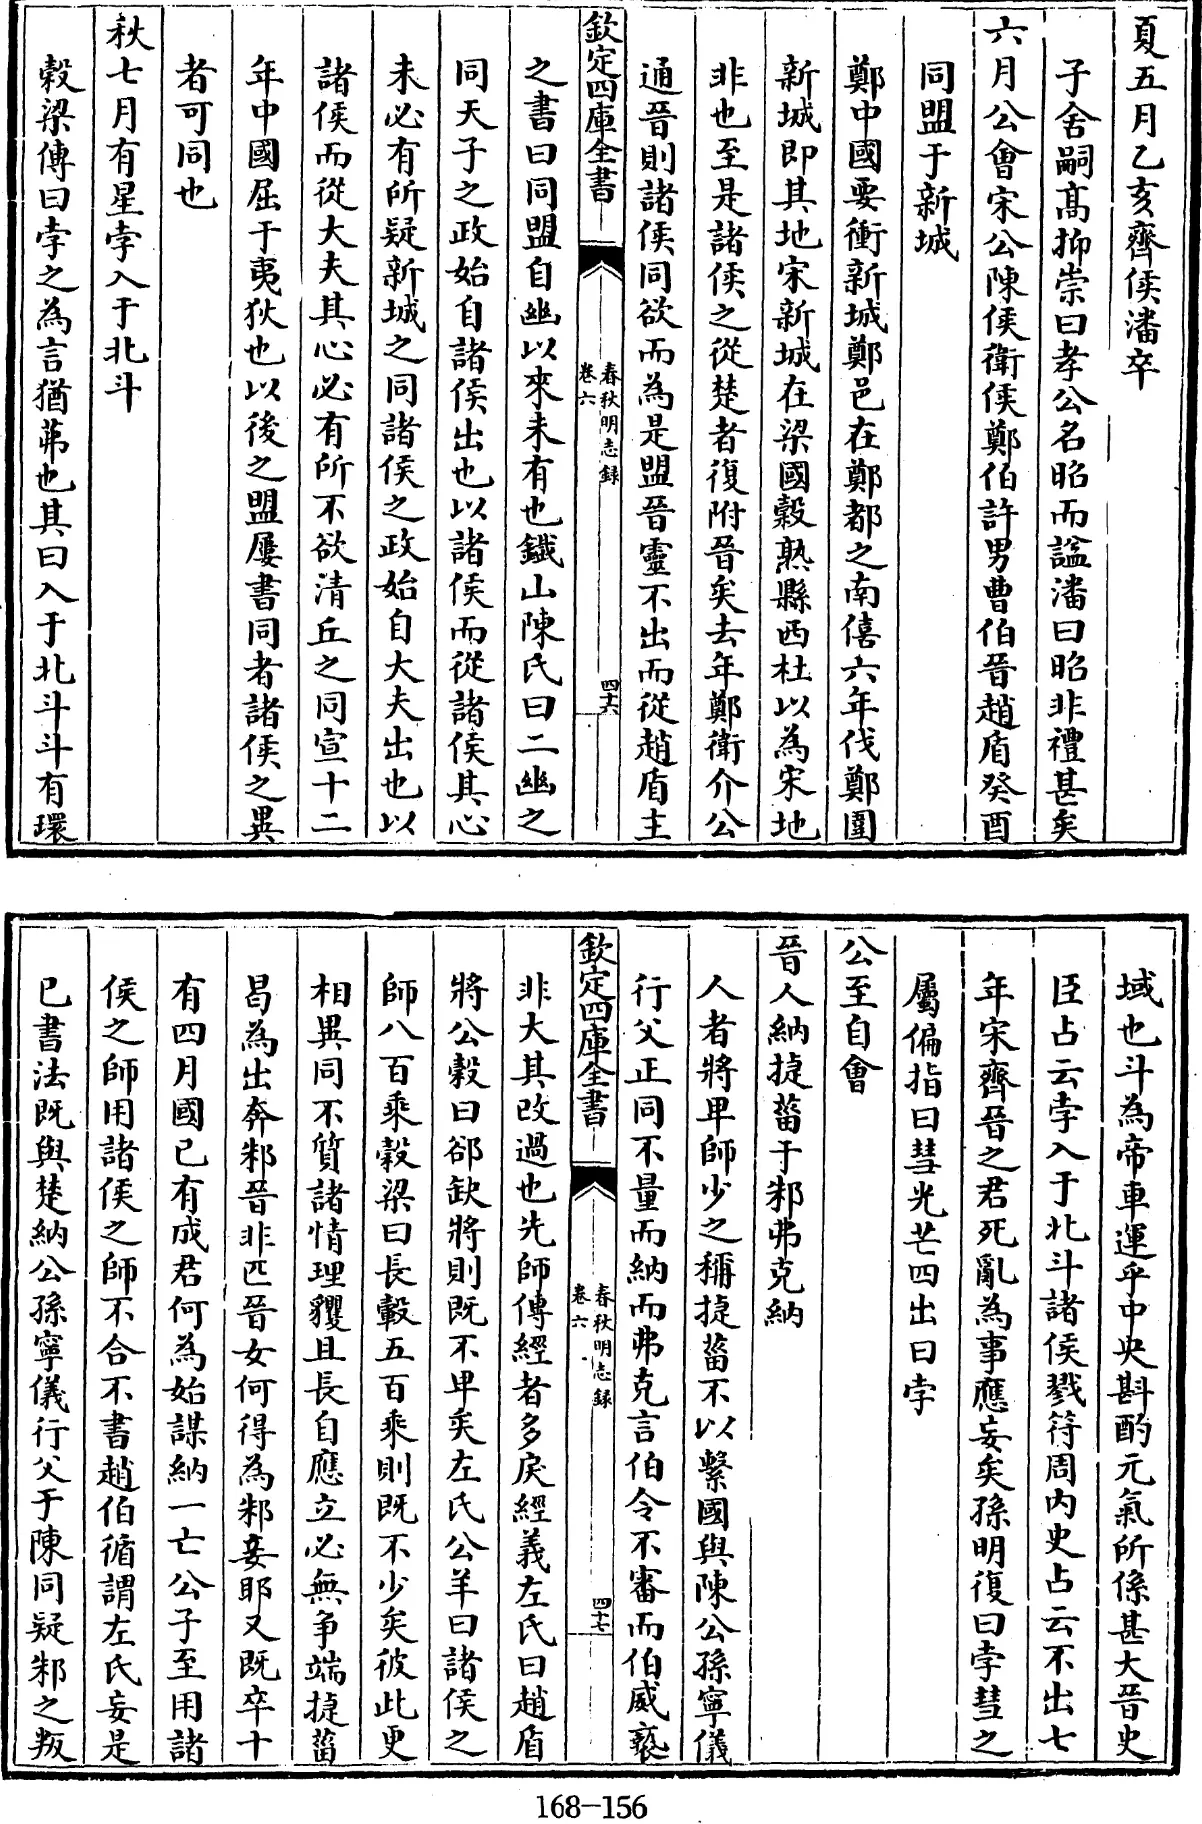 夏五月乙亥齊侯潘卒
子舍嗣髙抑崇曰孝公名昭而諡潘曰昭非禮甚矣
六月公會宋公陳侯衛侯鄭伯許男曹伯晉趙盾癸酉
同盟于新城
鄭中國要衝新城鄭邑在鄭都之南僖六年伐鄭圍
新城即其地宋新城在梁國穀熟縣西杜以為宋地
非也至是諸侯之從楚者復附晉矣去年鄭衛介公
通晉則諸侯同欲而為是盟晉靈不出而從趙盾主
欽定四庫全書
春秋明志録
卷六
四十六
之書曰同盟自幽以來未有也鐵山陳氏曰二幽之
同天子之政始自諸侯出也以諸侯而從諸侯其心
未必有所疑新城之同諸侯之政始自大夫出也以
諸侯而從大夫其心必有所不欲清丘之同宣十二
年中國屈于夷狄也以後之盟屢書同者諸侯之異
者可同也
秋七月有星孛入于北斗
穀梁傳曰孛之為言猶茀也其曰入于北斗斗有環
域也斗為帝車運乎中央斟酌元氣所係甚大晉史
臣占云孛入于北斗諸侯戮符周内史占云不出七
年宋齊晉之君死亂為事應妄矣孫明復曰孛彗之
屬偏指曰彗光芒四出曰孛
公至自會
晉人納捷菑于邾弗克納
人者將卑師少之稱捷菑不以繫國與陳公孫寧儀
行父正同不量而納而弗克言伯令不審而伯威褻
欽定四庫全書
春秋明志録
卷六
四十七
非大其改過也先師傳經者多戾經義左氏曰趙盾
將公穀曰郤缺將則既不卑矣左氏公羊曰諸侯之
師八百乘穀梁曰長轂五百乘則既不少矣彼此更
相異同不質諸情理貜且長自應立必無争端捷菑
曷為出奔邾晉非匹晉女何得為邾妾耶又既卒十
有四月國已有成君何為始謀納一亡公子至用諸
侯之師用諸侯之師不合不書趙伯循謂左氏妄是
已書法既與楚納公孫寧儀行父于陳同疑邾之叛
168-156